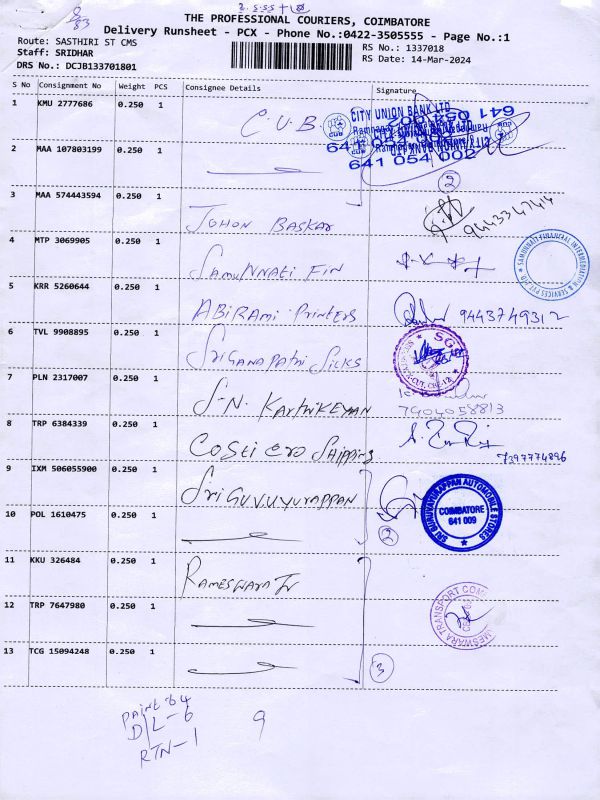 THE PROFESSIONAL COURIERS, COIMBATORE
Delivery Runsheet - PCX - Phone No.:0422-3505555 - Page No.:1
Route: SASTHIRI ST CMS
RS No.: 1337018
Staff: SRIDHAR
RS Date: 14-Mar-2024
DRS No.: DCJB133701801
S No Consignment No Weight PCS Consignee Details Signature
1 KMU 2777686 0.250 1 C.U.B.
CITY UNION BANK LTD
641 054 002
2 MAA 107803199 0.250 1
2
3 MAA 574443594 0.250 1 JOHON BASKAR
4 MTP 3069905 0.250 1 SAMUNNATI FIN
5 KRR 5260644 0.250 1 ABIRAMI PRINTERS 9443749312
6 TVL 9908895 0.250 1 SRIGANAPATHI SILKS
7 PLN 2317007 0.250 1 S.N. KARTHIKEYAN
7904058813
8 TRP 6384339 0.250 1 COSTI ERO SHIPPING
7397774896
9 IXM 506055900 0.250 1 SRI GUVUYURAPPAN
SRI GURUVAYURAPPAN AUTOMOBILE STORES
COIMBATORE
641 009
10 POL 1610475 0.250 1
2
11 KKU 326484 0.250 1 RAMESWARA TR
12 TRP 7647980 0.250 1
RAMESWARA TRANSPORT COM
13 TCG 15094248 0.250 1
3
D/L-6 9
RTN-1